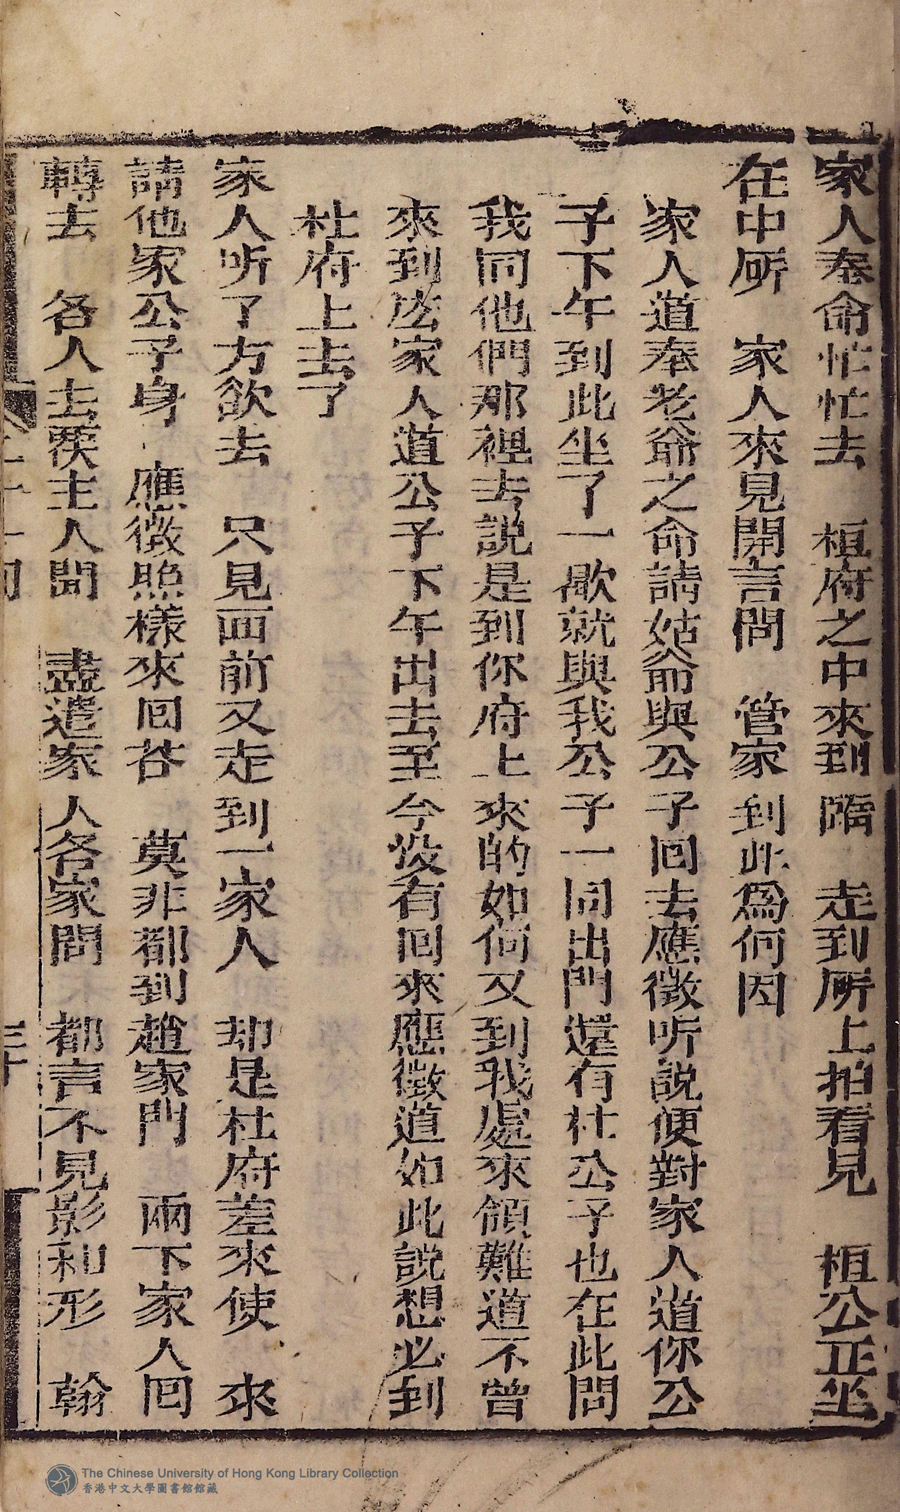 家人奉命忙忙去　桓府之中來到臨　走到所上抬看見　桓公正坐
在中所　家人來見開言問　管家到此爲何因
家人道奉老爺之命請姑爺與公子回去應徵听説便對家人道你公
子下午到此坐了一歇就與我公子一同出門還有杜公子也在此問
我同他們那裡去説是到你府上來的如何又到我處來領難道不曾
來到庅家人道公子下午出去至今没有回來應徵道如此説想必到
杜府上去了
家人听了方欲去　只見面前又走到一家人　却是杜府差來使　來
請他家公子身　應徵照樣來回荅　莫非都到趙家門　兩下家人回
轉去　各人去覆主人聞　盡遣家人各家問　都言不見影和形　翰
二十一回
三十
The Chinese University of Hong Kong Library Collection
香港中文大學圖書館館藏